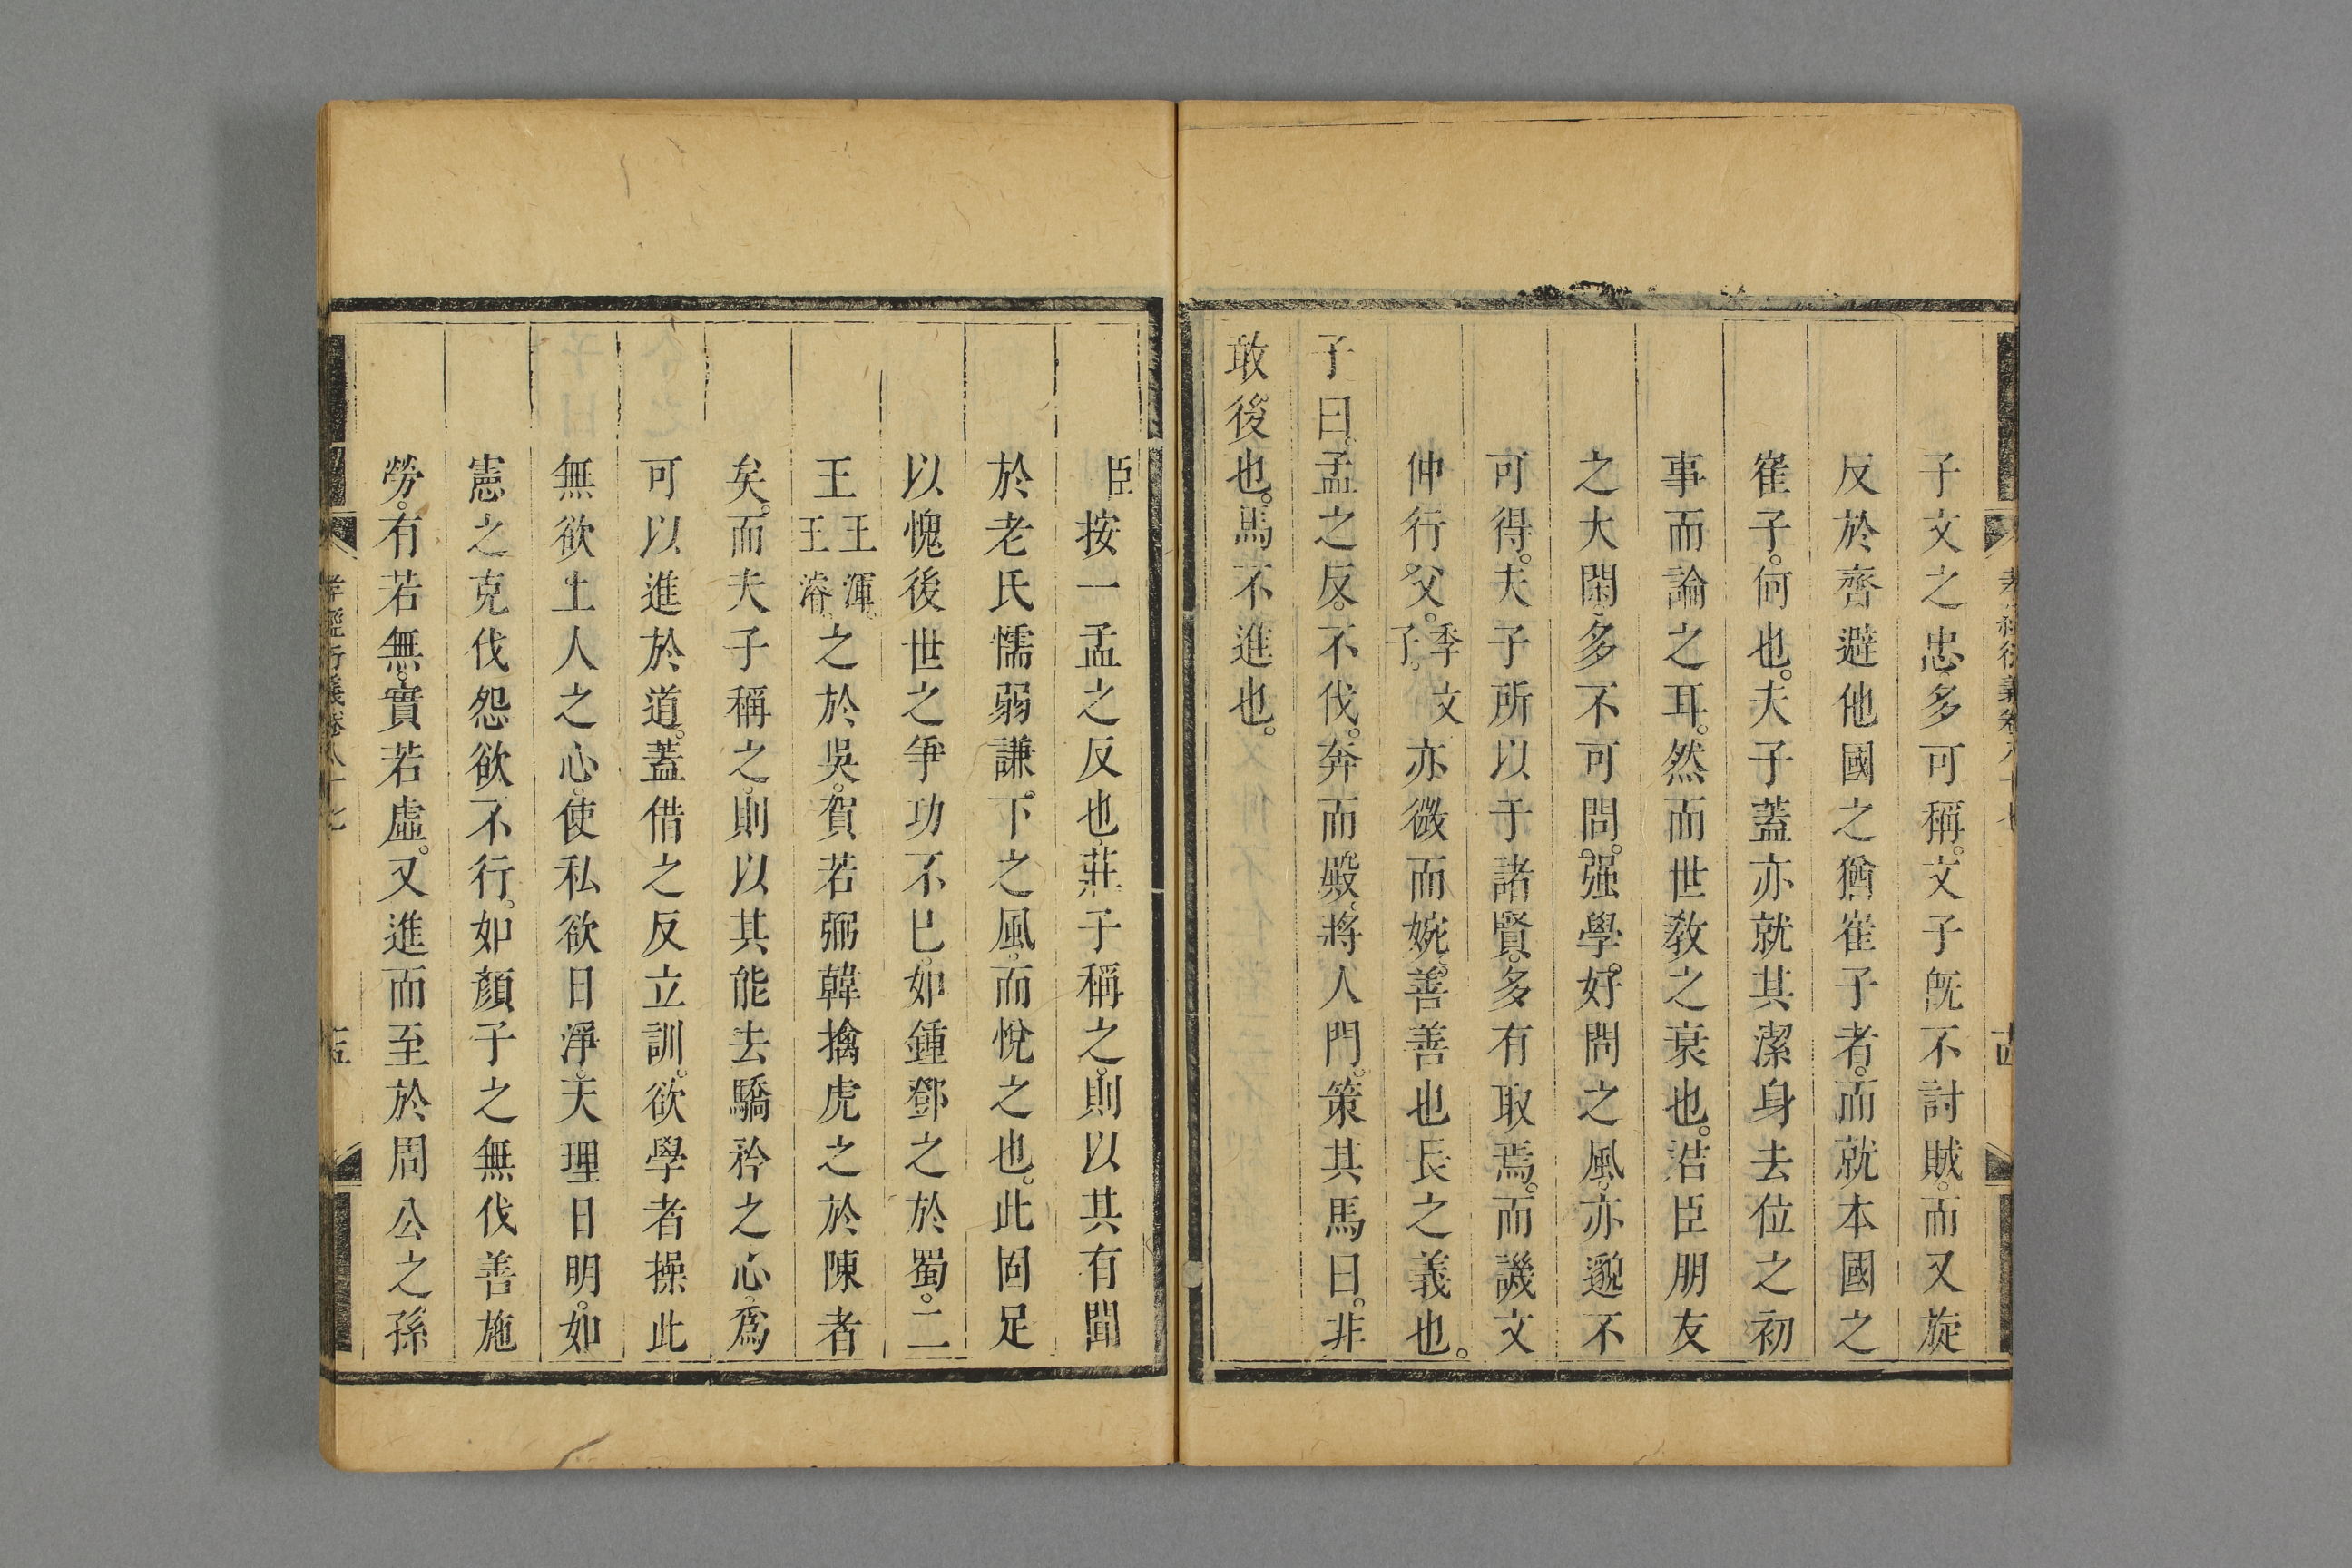 子文之忠多可稱。文子旣不討賊。而又旋
反於齊避他國之猶崔子者。而就本國之
崔子。何也。夫子蓋亦就其潔身去位之初
事而論之耳。然而世教之衰也。浩臣朋友
之大閑。多不可問。强學。好問之風。亦邈不
可得。夫子所以于諸賢。多有取焉。而譏文
仲行父。季文子。亦微而婉。善善也長之義也。
子曰。孟之反。不伐。奔而殿。將入門。策其馬曰。非
敢後也。馬不進也。
臣按一孟之反也。莊子稱之。則以其有聞
於老氏懦弱謙下之風。而悅之也。此固足
以愧後世之爭功不已。如鍾鄧之於蜀。二
王王渾。王濬。之於吳。賀若弼韓擒虎之於陳者
矣。而夫子稱之。則以其能去驕矜之心。爲
可以進於道。蓋借之反立訓。欲學者操此
無欲上人之心。使私欲日淨。天理日明。如
憲之克伐怨欲不行。如顏子之無伐善施
勞。有若無。實若虛。又進而至於周公之孫
孝經衍義卷八十七